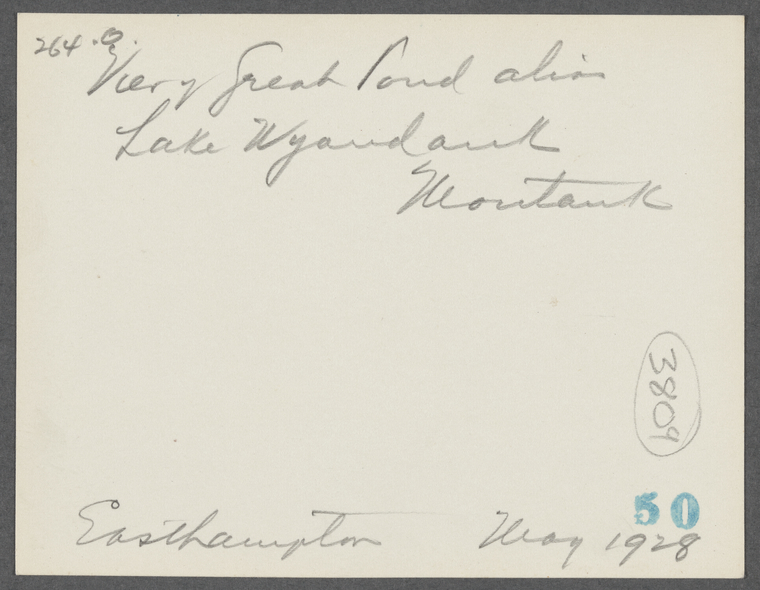 264.a.
View Great Pond alias
Lake Wyandank
Montauk
3809
50
Easthampton May 1928